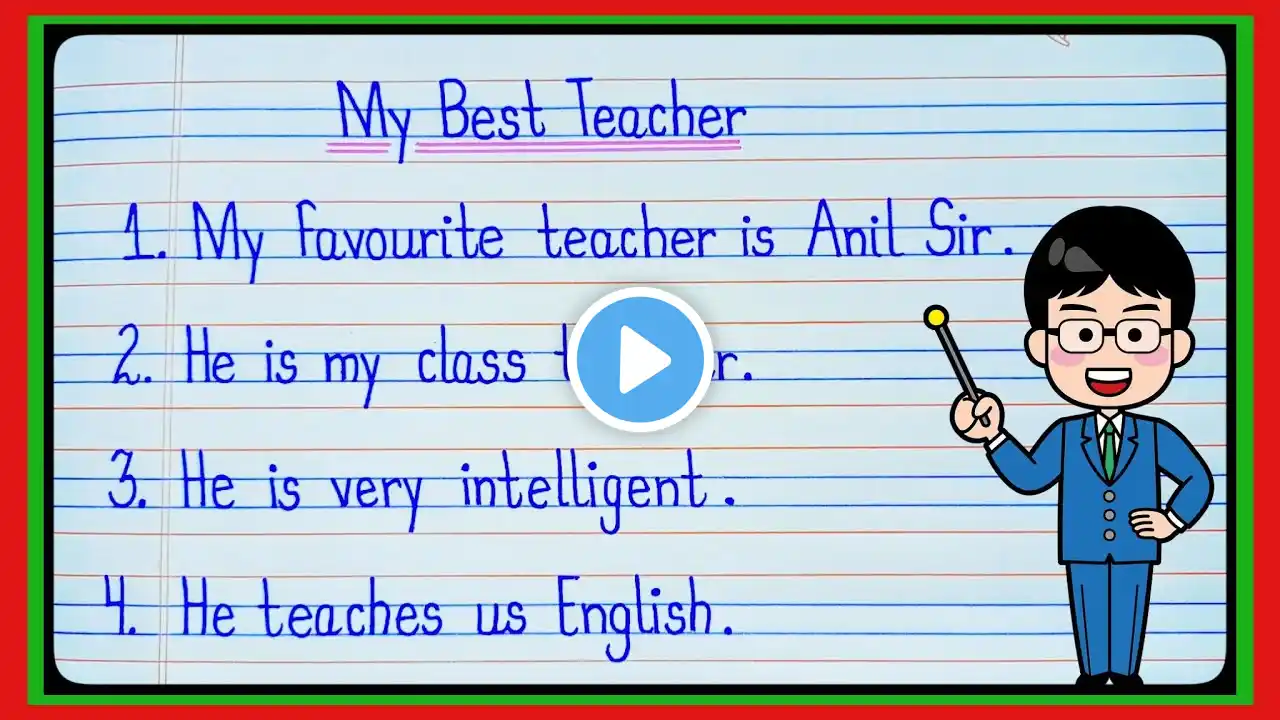 My Best Teacher
1. My favourite teacher is Anil Sir.
2. He is my class
3. He is very intelligent.
4. He teaches us English.